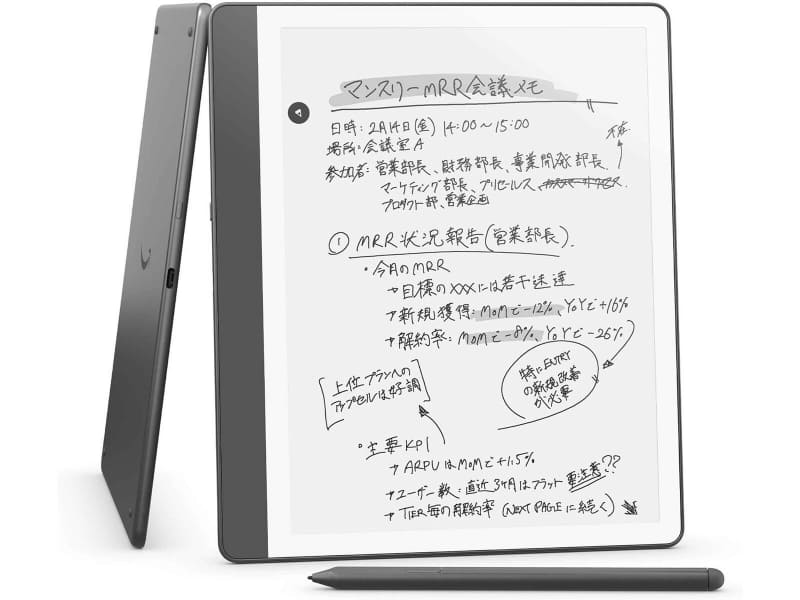 マンスリーMRR会議メモ
日時:2月14日(金) 14:00〜15:00
場所:会議室A
不在
参加者:営業部長、財務部長、事業開発部長、
マーケティング部長、プリセールス、カスタマーサクセス、
プロダクト部、営業企画
① MRR状況報告(営業部長).
・今月のMRR
→目標のXXXには若干未達
→新規獲得:MoMで-12%、YoYで+16%
→解約率:MoMで-8%、YoYで-26%
特にENTRY
の新規改善
が必要
[上位プランへの
アップセルは好調]
・主要KPI
→ARPUはMoMで+1.5%
→ユーザー数:直近3ヶ月はフラット 要注意??
→TIER毎の解約率 (NEXT PAGEに続く)